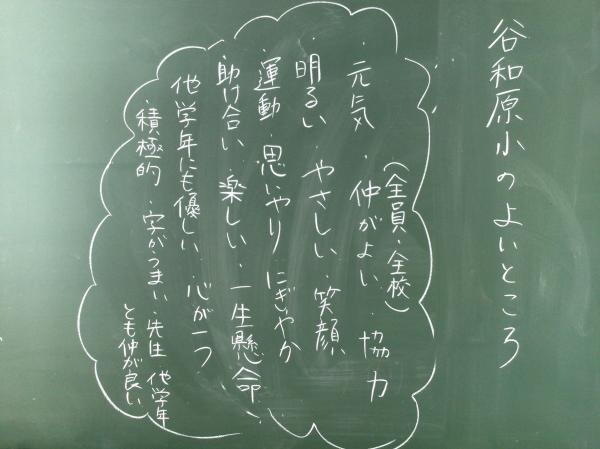 谷和原小のよいところ
(全員・全校)
・元気・仲がよい・協力
・明るい・やさしい・笑顔
・運動・思いやり にぎやか
・助け合い・楽しい・一生懸命
・他学年にも優しい・心が一つ
・積極的・字がうまい・先生 他学年
とも仲が良い